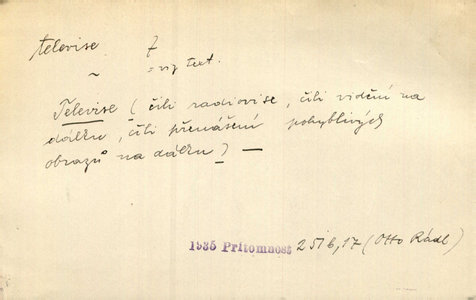 televise f
~ = viz text.
Televise (čili radiovise, čili vidění na
dálku, čili přenášení pohyblivých
obrazů na dálku) —
1935 Přítomnost 251b, 17 (Otto Rádl)